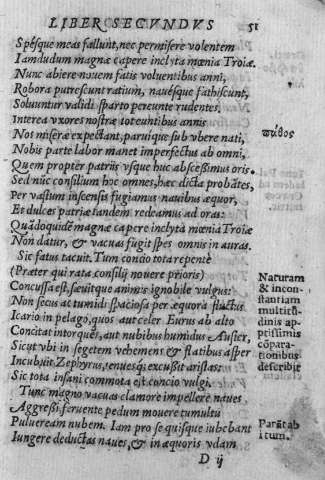 LIBER SECVNDVS 51
Spésque meas fallunt, nec permisere volentem
Iamdudum magnæ capere inclyta mœnia Troiæ.
Nunc abiere nouem fatis voluentibus anni,
Robora putrescunt ratium, nauésque fathiscunt,
Soluuntur validi sparto pereunte rudentes.
Interea vxores nostræ toteuntibus annis
Nos miseræ expectant, paruique sub vbere nati,
Nobis parte labor manet imperfectus ab omni,
Quem propter patriis vsque huc abscessimus oris.
Sed nūc consilium hoc omnes, hæc dicta probātes,
Per vastum inscensis fugiamus nauibus æquor,
Et dulces patriæ tandem redeamus ad oras:
Quādoquidē magnæ capere inclyta mœnia Troiæ
Non datur, & vacuas fugit spes omnis in auras.
Sic fatus tacuit. Tum concio tota repente
(Præter qui rata consilij nouere prioris)
Concussa est, sæuitque animis ignobile vulgus:
Non secus ac tumidi spaciosa per æquora fluctus
Icario in pelago, quos aut celer Eurus ab alto
Concitat intorquēs, aut nubibus humidus Auster,
Sicut vbi in segetem vehemens & flatibus asper
Incubuit Zephyrus, tenuesque excußit aristas:
Sic tota insani commota est concio vulgi.
Tunc magno vacuas clamore impellere naues
Aggreßi, feruente pedum mouere tumultu
Pulueream nubem. Iam pro se quisque iubebant
Iungere deductas naues, & in æquoris vdam
D ij
πάθος
Naturam
& incon
stantiam
multitu
dinis ap
ptissimis
cōpara-
tionibus
describit
Parāt ab
itum.